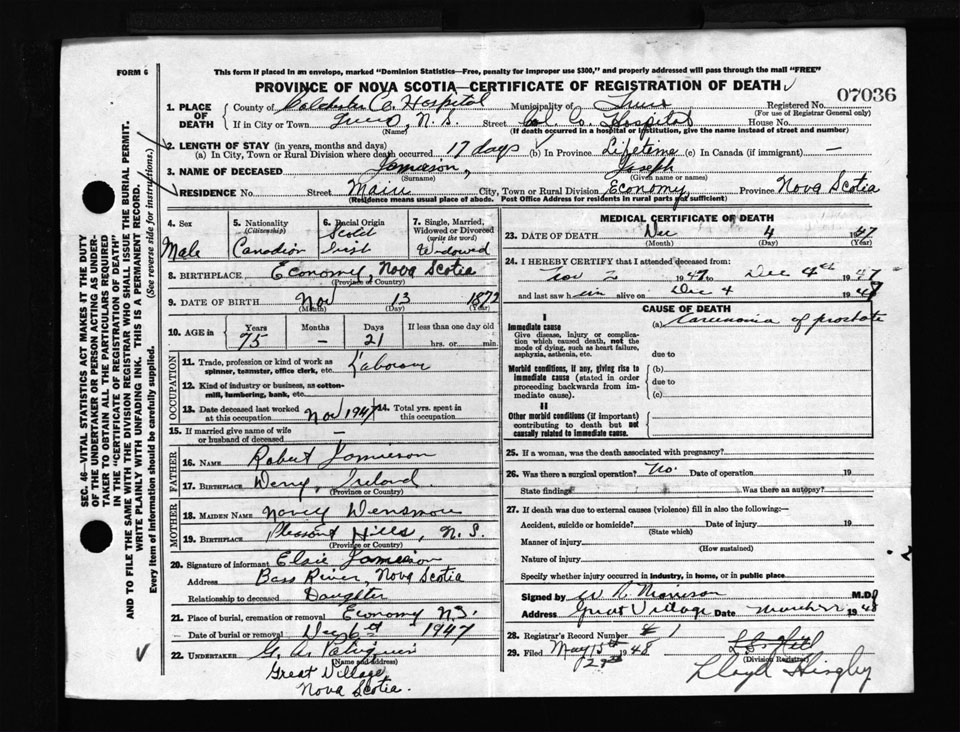 FORM 6
This form if placed in an envelope, marked "Dominion Statistics—Free, penalty for improper use $300," and properly addressed will pass through the mail "FREE"
PROVINCE OF NOVA SCOTIA—CERTIFICATE OF REGISTRATION OF DEATH
07036
1. PLACE OF DEATH County of Colchester C. Hospital Municipality of Truro Registered No.
(For use of Registrar General only)
If in City or Town Truro, N.S. Street Col. Co. Hospital House No.
(Name) (If death occurred in a hospital or institution, give the name instead of street and number)
2. LENGTH OF STAY (in years, months and days)
(a) In City, Town or Rural Division where death occurred 17 days (b) In Province Lifetime (c) In Canada (if immigrant) —
3. NAME OF DECEASED Jamieson, Joseph
(Surname) (Given name or names)
RESIDENCE No. Street Main City, Town or Rural Division Economy Province Nova Scotia
(Residence means usual place of abode. Post Office Address for residents in rural parts not sufficient)
4. Sex Male
5. Nationality (Citizenship) Canadian
6. Racial Origin Scotch Irish
7. Single, Married, Widowed or Divorced (write the word) Widowed
8. BIRTHPLACE Economy, Nova Scotia
(Province or Country)
9. DATE OF BIRTH Nov 13 1872
(Month) (Day) (Year)
10. AGE in Years 75 Months — Days 21 If less than one day old hrs. or min.
OCCUPATION
11. Trade, profession or kind of work as spinner, teamster, office clerk, etc. Laborer
12. Kind of industry or business, as cotton-mill, lumbering, bank, etc.
13. Date deceased last worked at this occupation Nov 1947 14. Total yrs. spent in this occupation
15. If married give name of wife or husband of deceased —
FATHER
16. NAME Robert Jamieson
17. BIRTHPLACE Derry, Ireland
(Province or Country)
MOTHER
18. MAIDEN NAME Nancy
19. BIRTHPLACE Pleasant Hills, N.S.
(Province or Country)
20. Signature of informant Elsie Jamieson
Address Bass River, Nova Scotia
Relationship to deceased Daughter
21. Place of burial, cremation or removal Economy N.S.
Date of burial or removal Dec 6th 1947
22. UNDERTAKER G. A.
(Name and address)
Great Village
Nova Scotia.
MEDICAL CERTIFICATE OF DEATH
23. DATE OF DEATH Dec 4 1947
(Month) (Day) (Year)
24. I HEREBY CERTIFY that I attended deceased from:
Nov 2 1947 to Dec 4th 1947
and last saw him alive on Dec 4 1948
CAUSE OF DEATH
I
Immediate cause
Give disease, injury or complication which caused death, not the mode of dying, such as heart failure, asphyxia, asthenia, etc.
(a) Carcinoma of prostate
due to
Morbid conditions, if any, giving rise to immediate cause (stated in order proceeding backwards from immediate cause).
(b)
due to
(c)
II
Other morbid conditions (if important) contributing to death but not causally related to immediate cause.
25. If a woman, was the death associated with pregnancy?
26. Was there a surgical operation? No. Date of operation 19
State findings Was there an autopsy?
27. If death was due to external causes (violence) fill in also the following:—
Accident, suicide or homicide? Date of injury 19
(State which)
Manner of injury
(How sustained)
Nature of injury
Specify whether injury occurred in industry, in home, or in public place
Signed by W R Morrison M.D.
Address Great Village Date March 22 1948
28. Registrar's Record Number 4 1
29. Filed May 15th 1948
27th
(Division Registrar)
Lloyd
SEC. 46—VITAL STATISTICS ACT MAKES IT THE DUTY
OF THE UNDERTAKER OR PERSON ACTING AS UNDER-
TAKER TO OBTAIN ALL THE PARTICULARS REQUIRED
IN THE "CERTIFICATE OF REGISTRATION OF DEATH"
AND TO FILE THE SAME WITH THE DIVISION REGISTRAR WHO SHALL ISSUE THE BURIAL PERMIT.
WRITE PLAINLY WITH UNFADING INK. THIS IS A PERMANENT RECORD.
Every item of information should be carefully supplied. (See reverse side for instructions.)